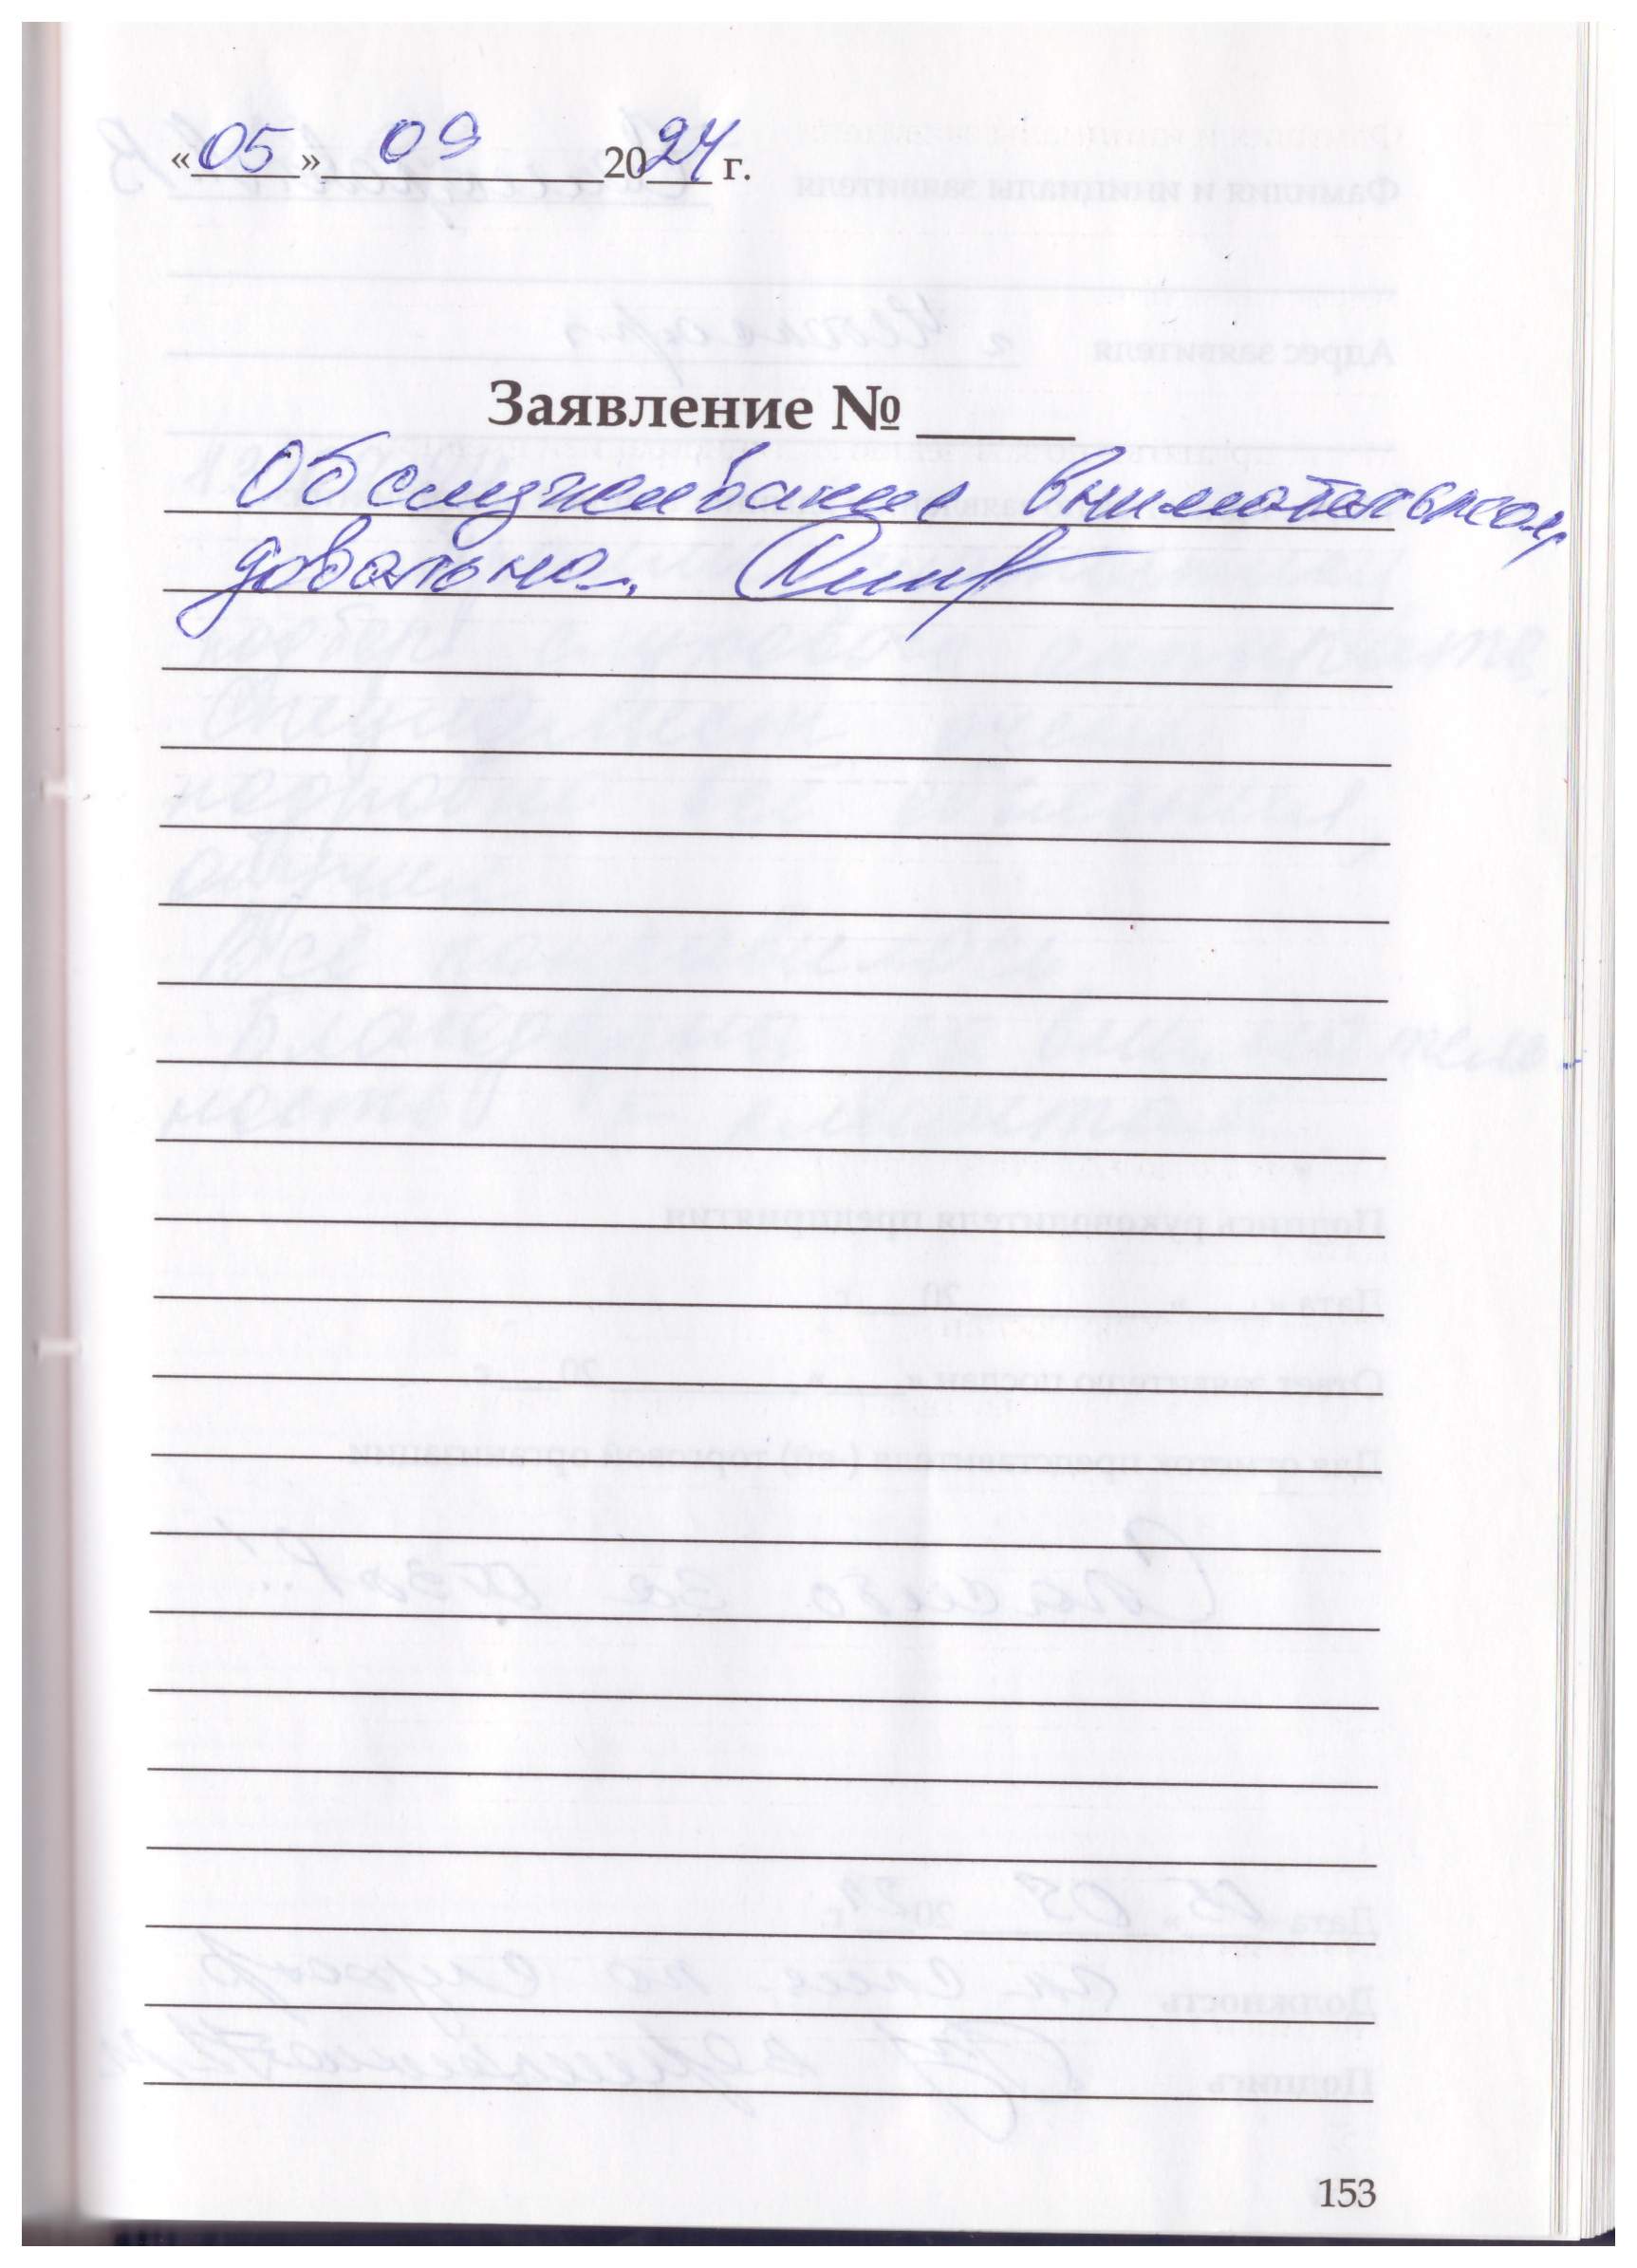 «05» 09 2024 г.
Заявление №
Обслуживание внимательном,
довольна.
153